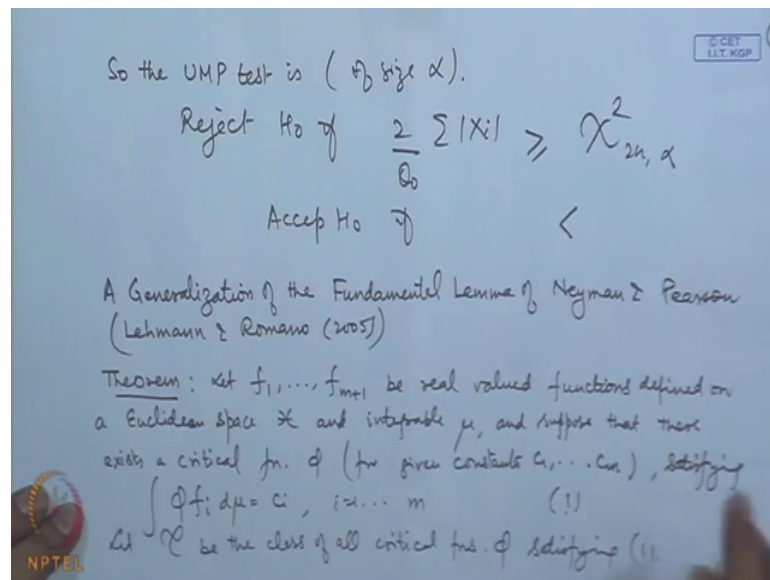 © CET
I.I.T. KGP
So the UMP test is ( of size α).
Reject Ho if 2/θ₀ Σ |Xi| ⩾ χ²₂ₙ, α
Accep Ho if <
A Generalization of the Fundamental Lemma of Neyman & Pearson
(Lehmann & Romano (2005))
Theorem : Let f₁, ..., fₘ₊₁ be real valued functions defined on
a Euclidean space 𝒳 and integrable μ, and suppose that there
exists a critical fn. φ (for given constants c₁, ... cₘ), satisfying
∫ φ fᵢ dμ = cᵢ, i = ... m (1)
Let 𝒞 be the class of all critical fns. φ satisfying (1).
NPTEL